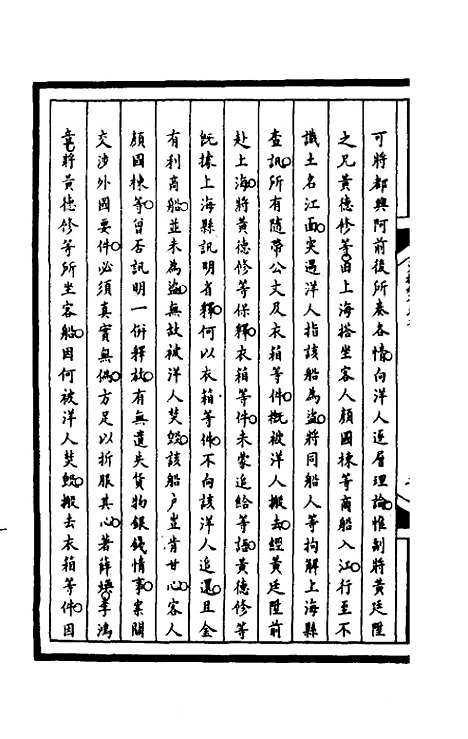 可將都興阿前後所奏各情向洋人逐層理論惟副將黃廷陞
之兄黃德修等由上海搭坐客人顏國棟等商船入江行至不
識土名江面突遇洋人指該船為盜將同船人等拘解上海縣
查訊所有隨帶公文及衣箱等件概被洋人搬去經黃廷陞前
赴上海將黃德修等保釋衣箱等件未蒙追給等語黃德修等
既據上海縣訊明省釋何以衣箱等件不向該洋人追還且金
有利商船並未為盜無故被洋人焚毀該船戶豈肯甘心客人
顏國棟等曾否訊明一併釋放有無遺失貨物銀錢情事案關
交涉外國要件必須真實無偽方足以折服其心著薛煥李鴻
章將黃德修等所坐客船因何被洋人焚毀搬去衣箱等件因